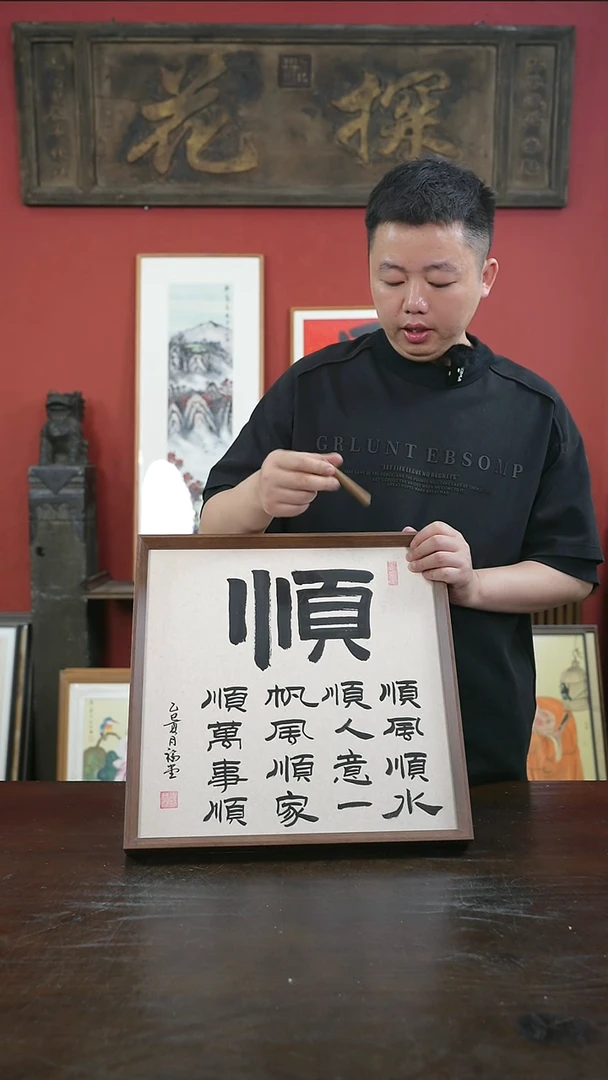 探花
GRLUNT EBSOMP
順
順風順水
順人意一
帆風順家
順萬事順
乙巳夏月